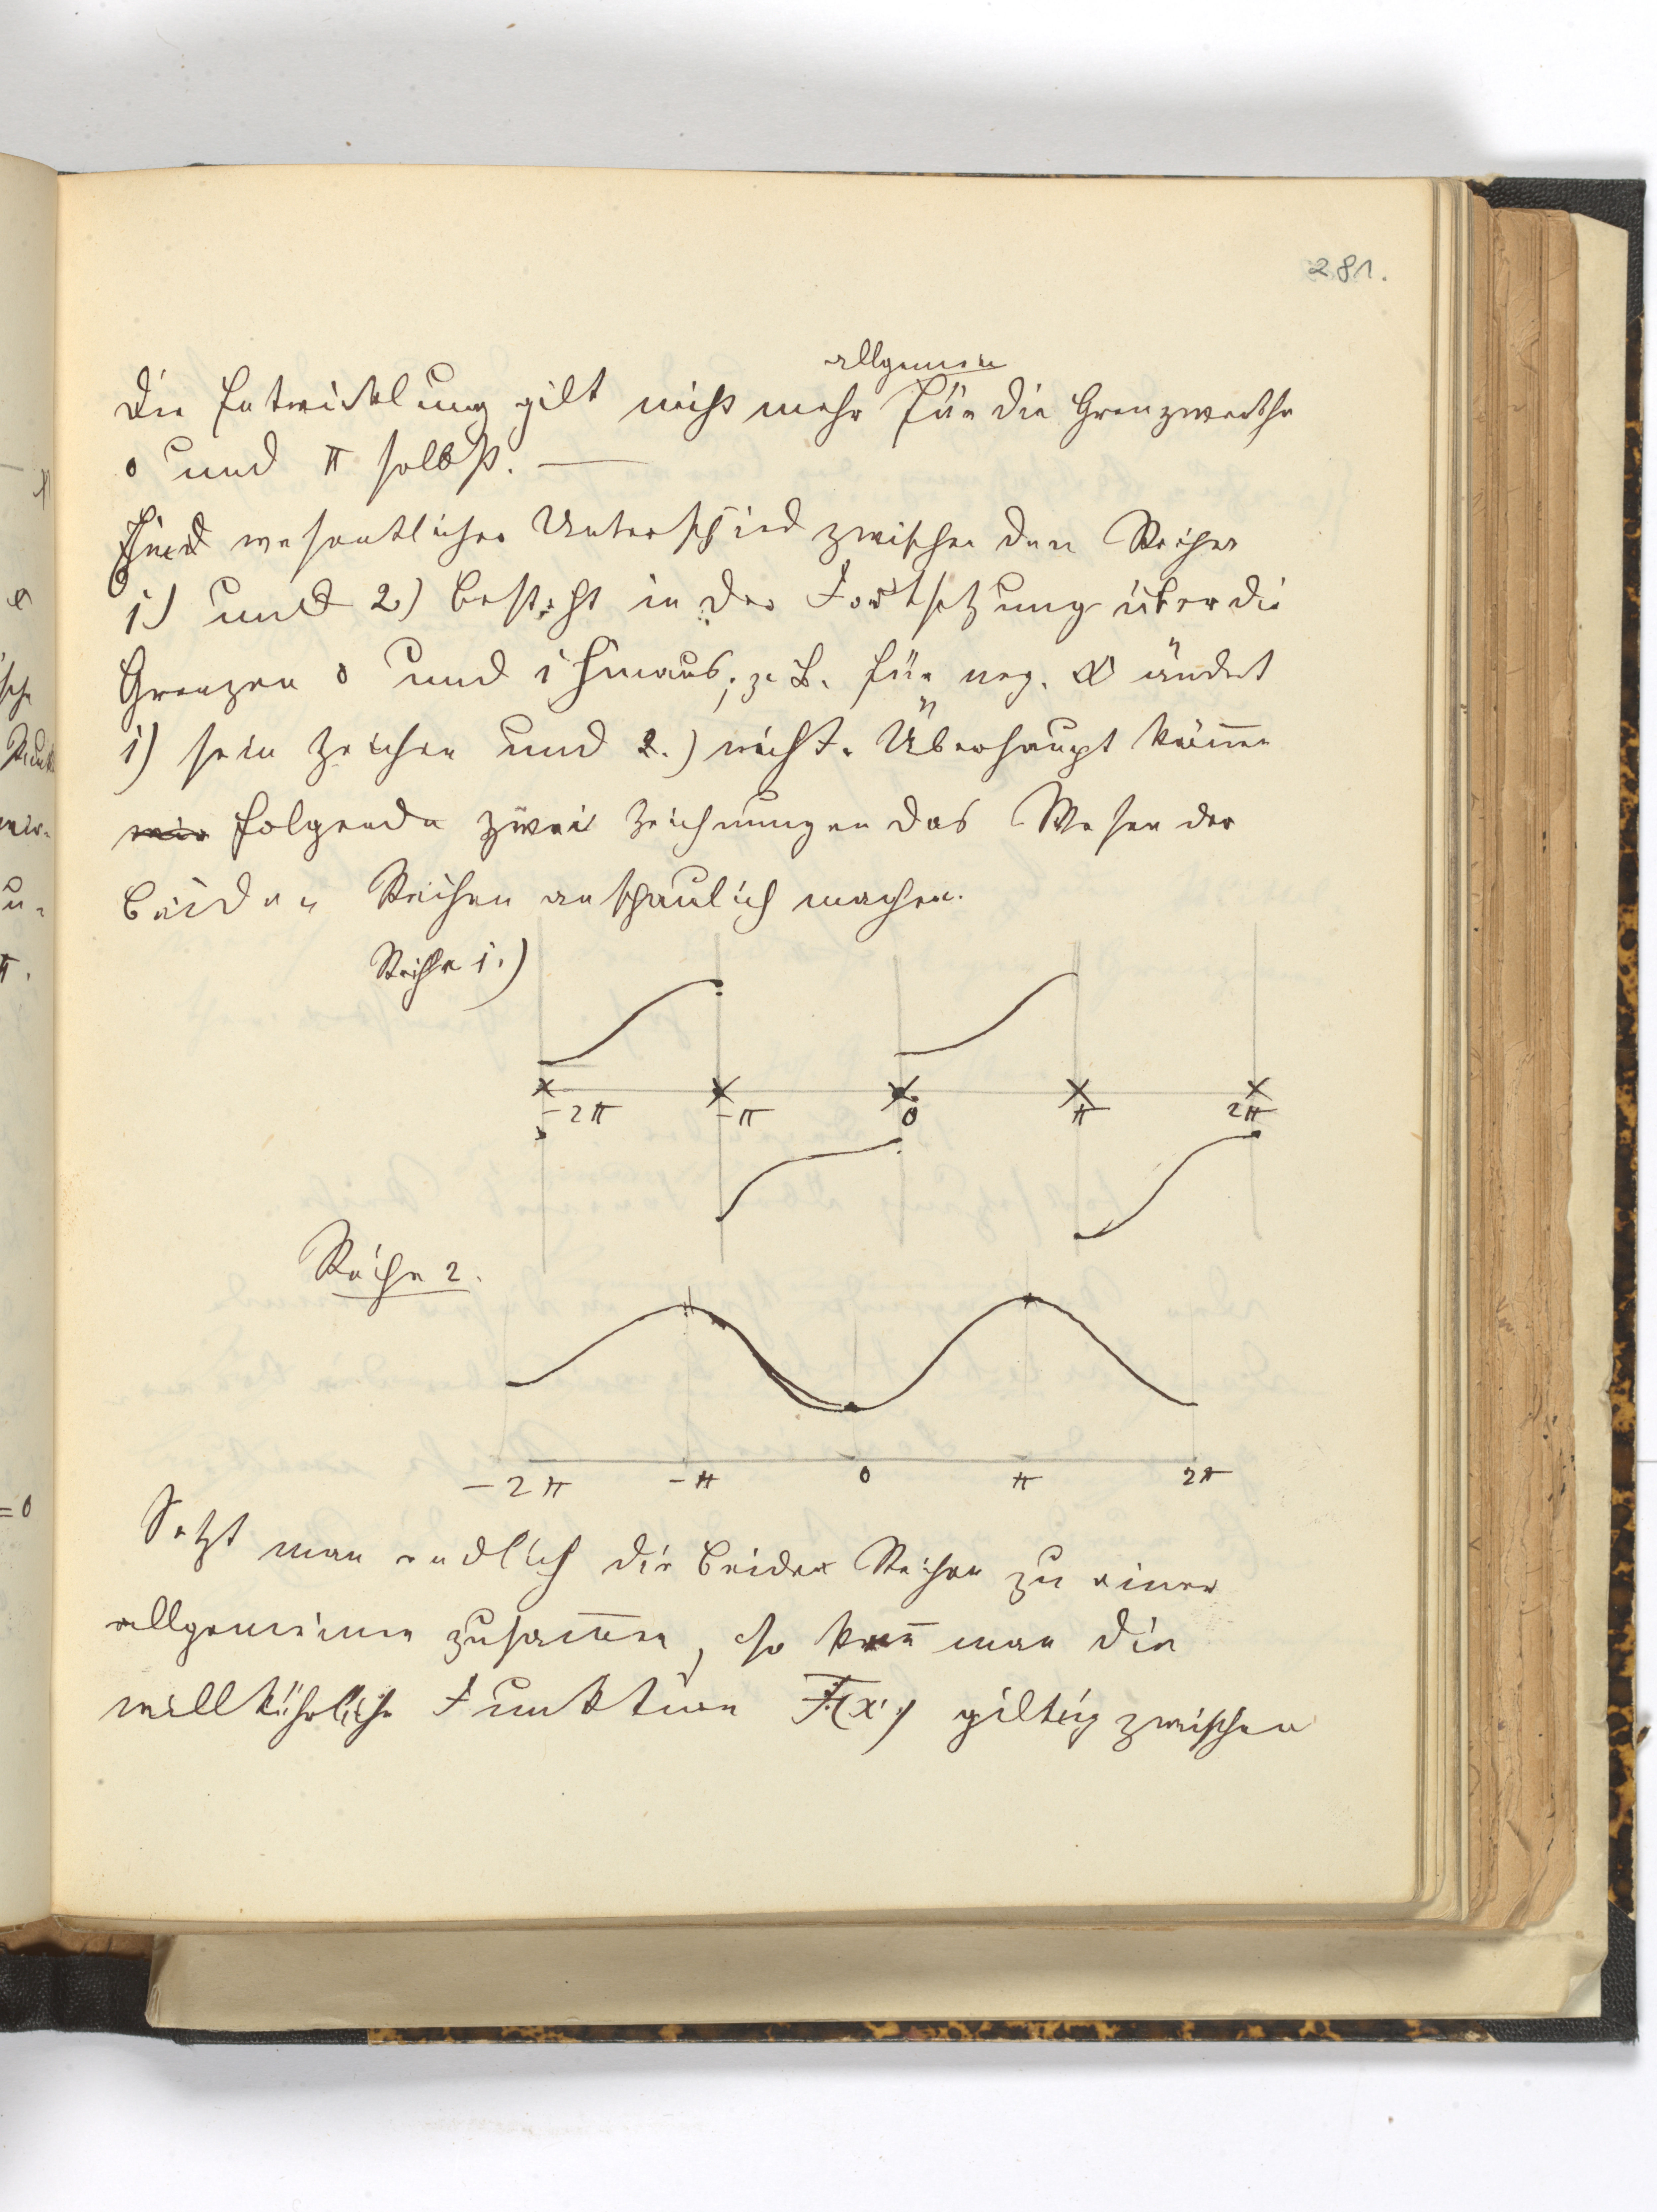 281.
allgemein
Die Entwicklung gilt nicht mehr für die Grenzwerthe
0 und π selbst. —
wesentlicher Unterschied zwischen den Reihen
1) und 2) besteht in der Fortsetzung über die
Grenzen 0 und 1 hinaus; z. B. für neg. x ändert
1) sein Zeichen und 2.) nicht. Überhaupt könn̄en
wir folgende zwei Zeichnungen das Wesen der
beiden Reihen anschaulich machen.
Reihe 1.)
-2π -π 0 π 2π
Reihe 2.
-2π -π 0 π 2π
Setzt man endlich die beiden Reihen zu einer
allgemeinen zusam̄en, so kan̄ man die
willkührliche Funktion F(x) giltig zwischen